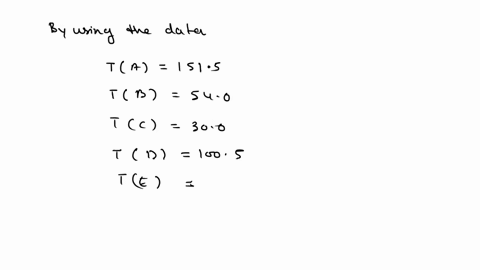 By using the data
T(A) = 151.5
T(B) = 54.0
T(C) = 30.0
T(D) = 100.5
T(E) =